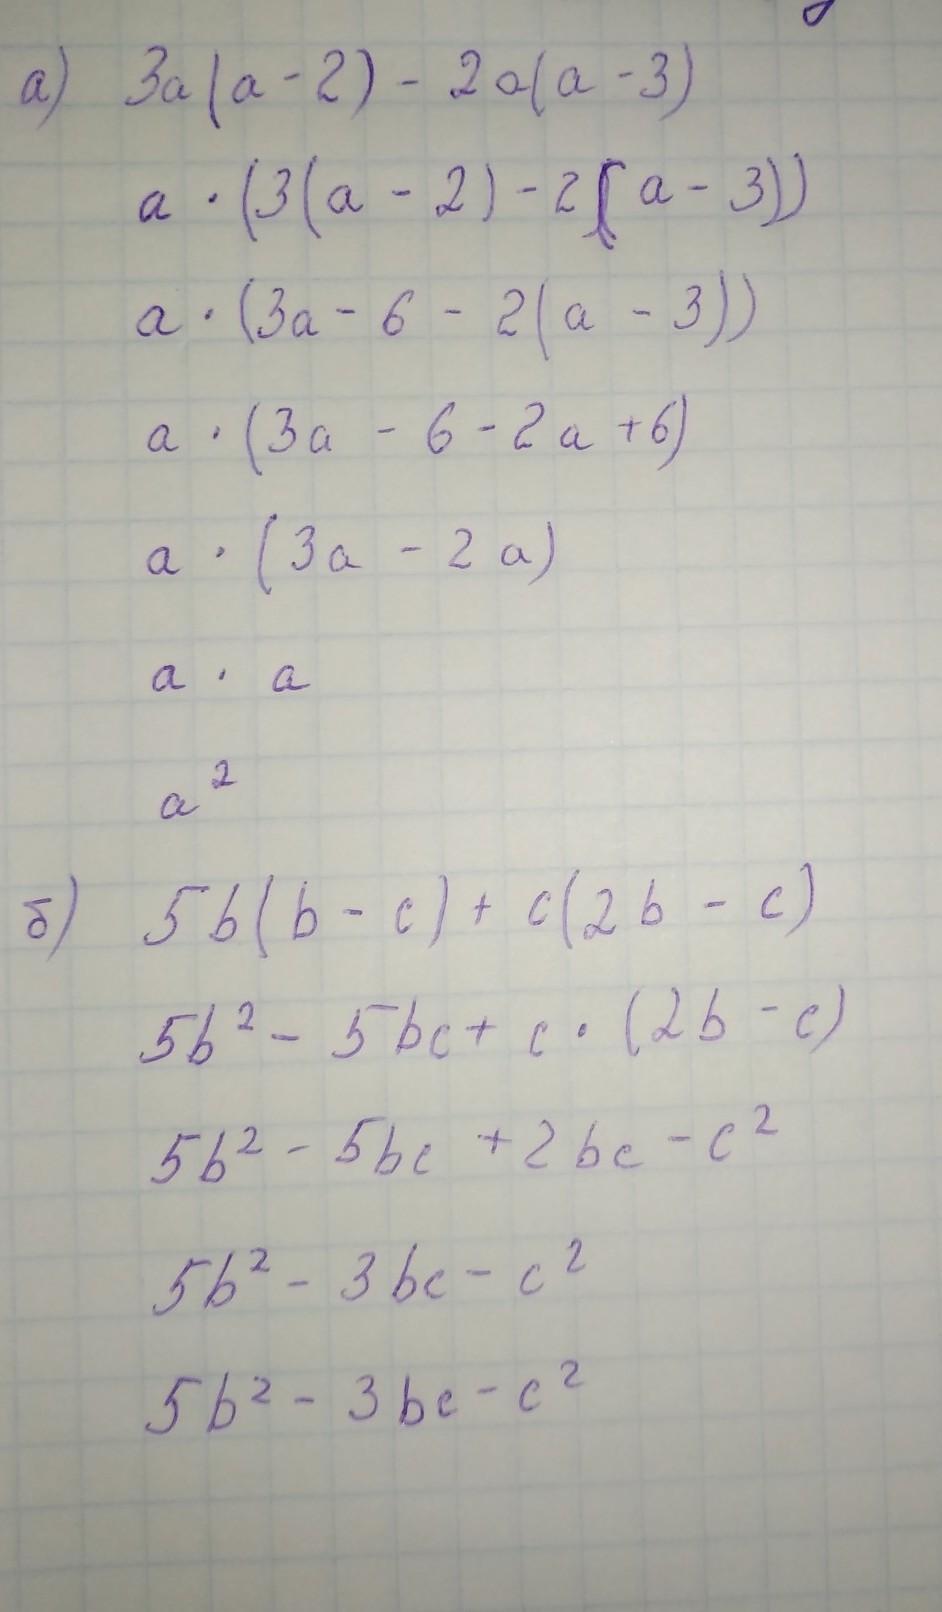 а) 3a(a-2)-2a(a-3)
a·(3(a-2)-2(a-3))
a·(3a-6-2(a-3))
a·(3a-6-2a+6)
a·(3a-2a)
a·a
a²
б) 5b(b-c)+c(2b-c)
5b²-5bc+c·(2b-c)
5b²-5bc+2bc-c²
5b²-3bc-c²
5b²-3bc-c²